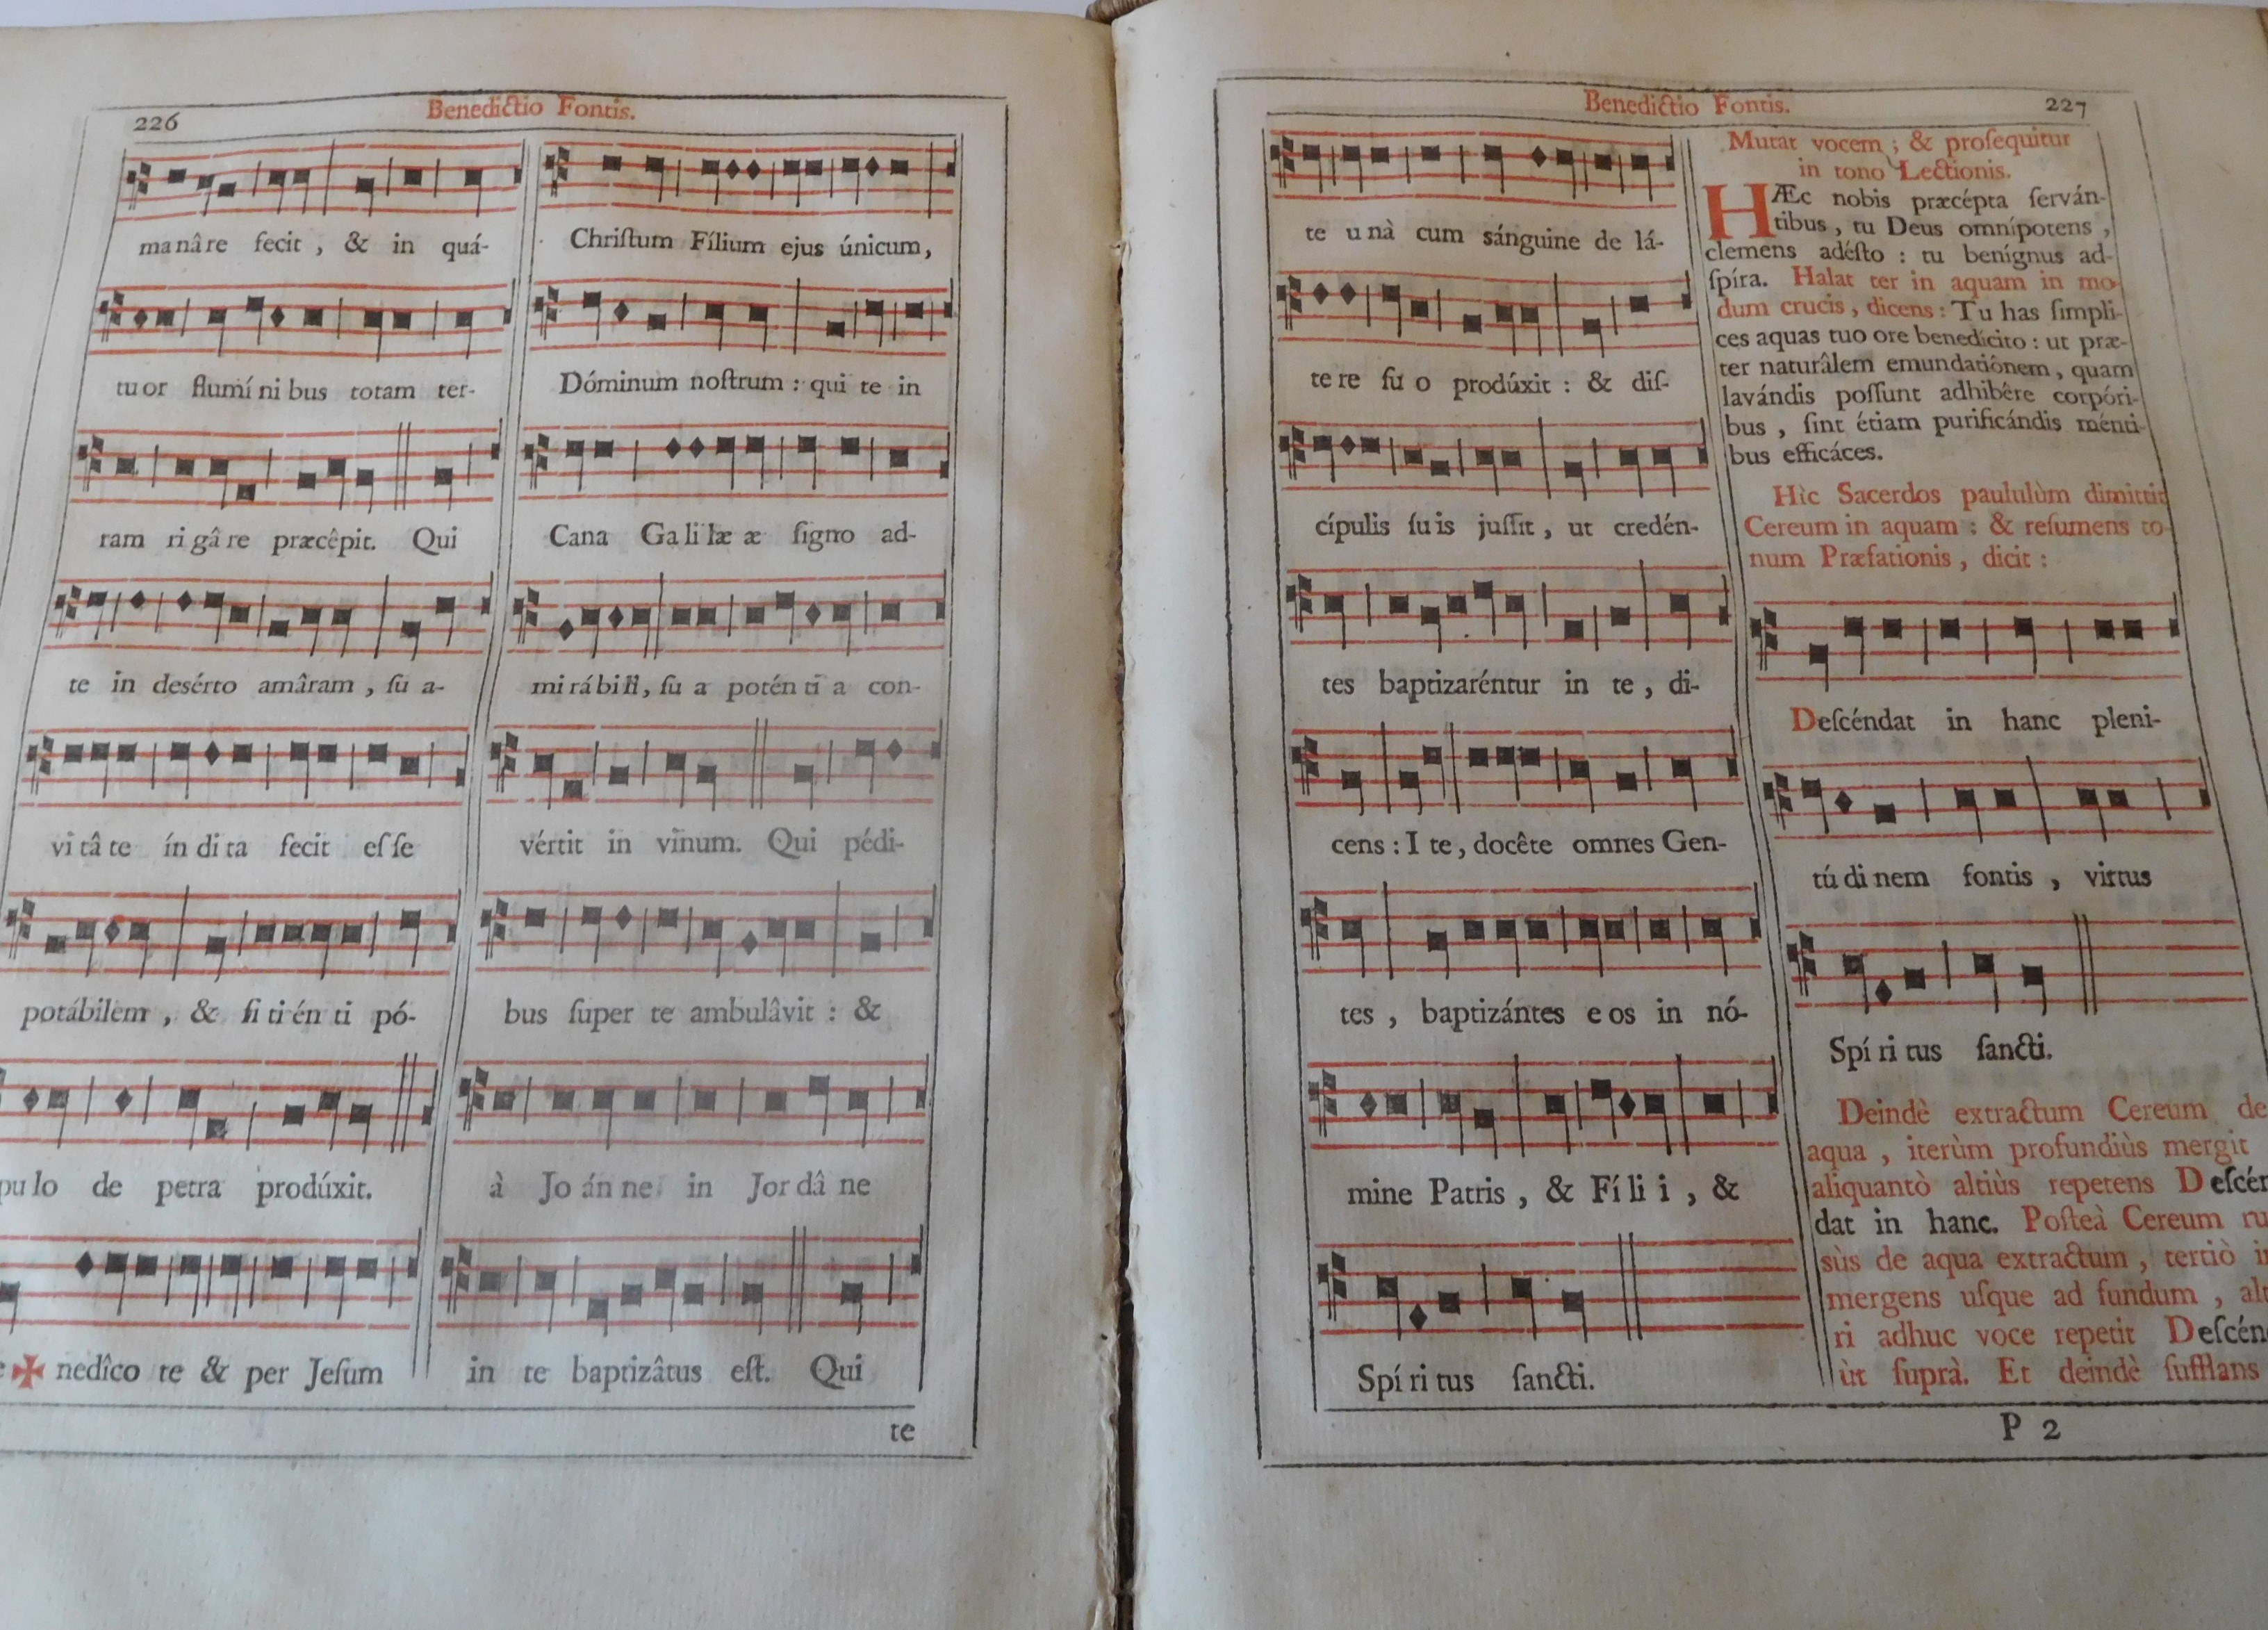 226
Benedictio Fontis.
manâre fecit , & in quá-
tuor flumínibus totam ter-
ram rigâre præcêpit. Qui
te in desérto amâram , ſua-
vitâte índita fecit eſſe
potábilem , & ſitiénti pó-
pulo de petra prodúxit.
✠ nedîco te & per Jeſum
Chriſtum Fílium ejus únicum,
Dóminum noſtrum : qui te in
Cana Galilææ ſigno ad-
mirábili, ſua poténtia con-
vértit in vinum. Qui pédi-
bus ſuper te ambulâvit : &
à Joánne in Jordâne
in te baptizâtus eſt. Qui
te
Benedictio Fontis.
227
te unà cum sánguine de lá-
tere ſuo prodúxit : & diſ-
cípulis ſuis juſſit , ut credén-
tes baptizaréntur in te , di-
cens : Ite, docête omnes Gen-
tes , baptizántes eos in nó-
mine Patris , & Fílii , &
Spíritus ſancti.
Mutat vocem ; & proſequitur
in tono Lectionis.
HÆc nobis præcépta ſerván-
tibus , tu Deus omnípotens ,
clemens adéſto : tu benígnus ad-
ſpíra. Halat ter in aquam in mo-
dum crucis , dicens : Tu has ſimpli-
ces aquas tuo ore benedícito : ut præ-
ter naturâlem emundatiónem , quam
lavándis poſſunt adhibêre corpóri-
bus , ſint étiam purificándis ménti-
bus efficáces.
Hìc Sacerdos paululùm dimittit
Cereum in aquam : & reſumens to-
num Præfationis , dicit :
Deſcéndat in hanc pleni-
túdinem fontis , virtus
Spíritus ſancti.
Deindè extractum Cereum de
aqua , iterùm profundiùs mergit
aliquantò altiùs repetens Deſcén
dat in hanc. Poſteà Cereum ru
sùs de aqua extractum , tertiò i
mergens uſque ad fundum , alt
ri adhuc voce repetit Deſcén
ùt ſuprà. Et deindè ſufflans
P 2